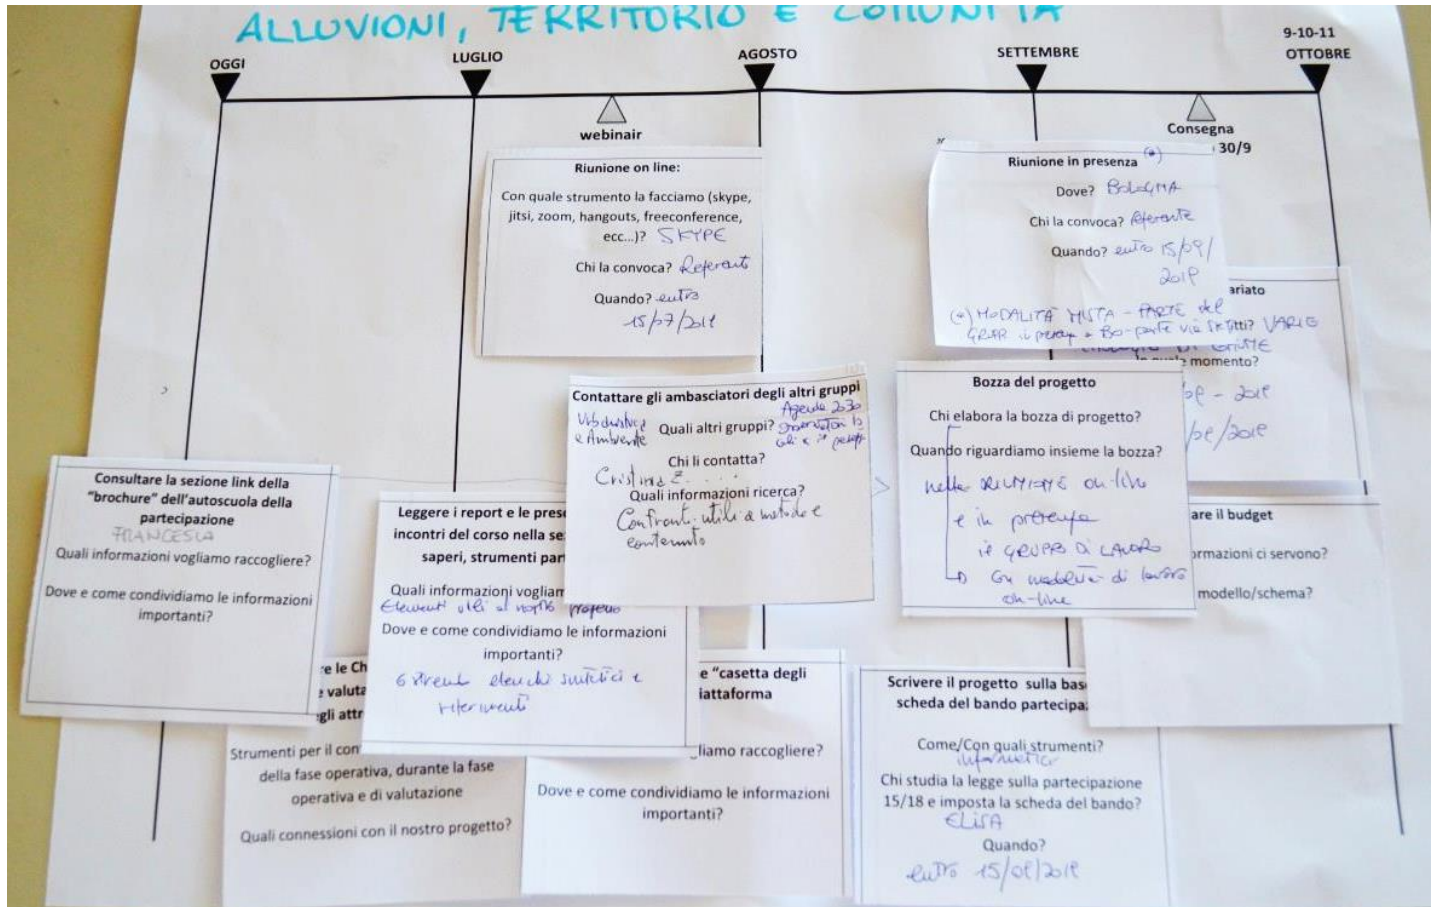 ALLUVIONI, TERRITORIO E COMUNITÀ
OGGI
LUGLIO
AGOSTO
SETTEMBRE
9-10-11
OTTOBRE
webinair
Consegna
30/9
Riunione on line:
Con quale strumento la facciamo (skype,
jitsi, zoom, hangouts, freeconference,
ecc...)? SKYPE
Chi la convoca? Referente
Quando? entro
15/07/2019
Riunione in presenza (*)
Dove? BOLOGNA
Chi la convoca? Referente
Quando? entro 15/09/
2019
(*) MODALITÀ MISTA - PARTE del
GRUPPO in presenza a BO - parte via
ariato
tti? VARIE
momento?
2019
/2019
Contattare gli ambasciatori degli altri gruppi
Urbanistica
e Ambiente
Quali altri gruppi?
Agenda 2030
Chi li contatta?
Cristina Z....
Quali informazioni ricerca?
Confronti utili a metodo e
contenuto
Bozza del progetto
Chi elabora la bozza di progetto?
Quando riguardiamo insieme la bozza?
nella RIUNIONE on-line
e in presenza
il GRUPPO DI LAVORO
con modalità di lavoro
on-line
Consultare la sezione link della
"brochure" dell'autoscuola della
partecipazione
FRANCESCA
Quali informazioni vogliamo raccogliere?
Dove e come condividiamo le informazioni
importanti?
Leggere i report e le prese
incontri del corso nella se
saperi, strumenti part
Quali informazioni vogliam
Elementi utili al nostro progetto
Dove e come condividiamo le informazioni
importanti?
elenchi sintetici e
riferimenti
are il budget
ormazioni ci servono?
modello/schema?
re le Ch
e valuta
gli attr
Strumenti per il con
della fase operativa, durante la fase
operativa e di valutazione
Quali connessioni con il nostro progetto?
e "casetta degli
iattaforma
liamo raccogliere?
Dove e come condividiamo le informazioni
importanti?
Scrivere il progetto sulla bas
scheda del bando partecipa
Come/Con quali strumenti?
informatici
Chi studia la legge sulla partecipazione
15/18 e imposta la scheda del bando?
ELISA
Quando?
entro 15/09/2019